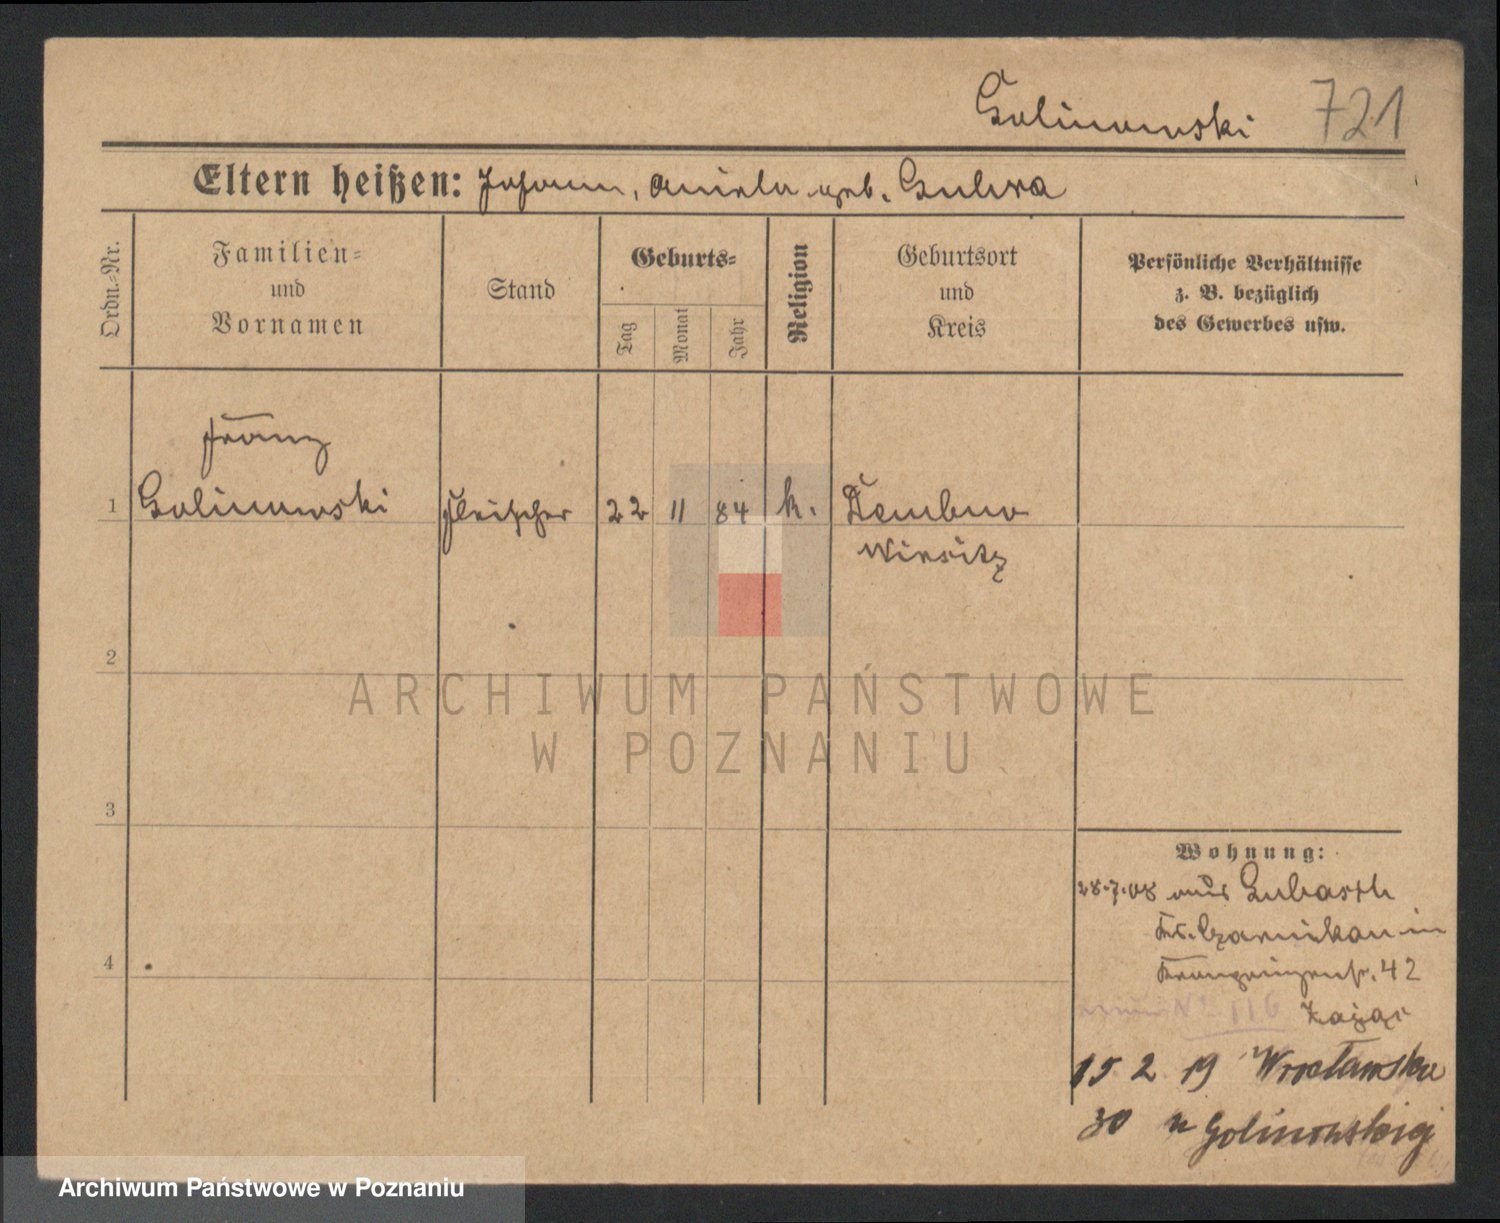 Golinowski 721
Eltern heißen: Johann, Aniela geb. Gulcza
Ordn.-Nr.
Familien-
und
Vornamen
Stand
Geburts-
Tag
Monat
Jahr
Religion
Geburtsort
und
Kreis
Persönliche Verhältnisse
z. B. bezüglich
des Gewerbes usw.
Franz
1 Golinowski Fleischer 22 11 84 k. Dembno
Wirsitz
2
3
4
Wohnung:
28.7.08 aus Lubasch
Kr. Czarnikau in
Kronprinzenstr. 42
neue No 116
15 2 19 Wrocławska
30 u Golinowskiej
ARCHIWUM PAŃSTWOWE
W POZNANIU
Archiwum Państwowe w Poznaniu